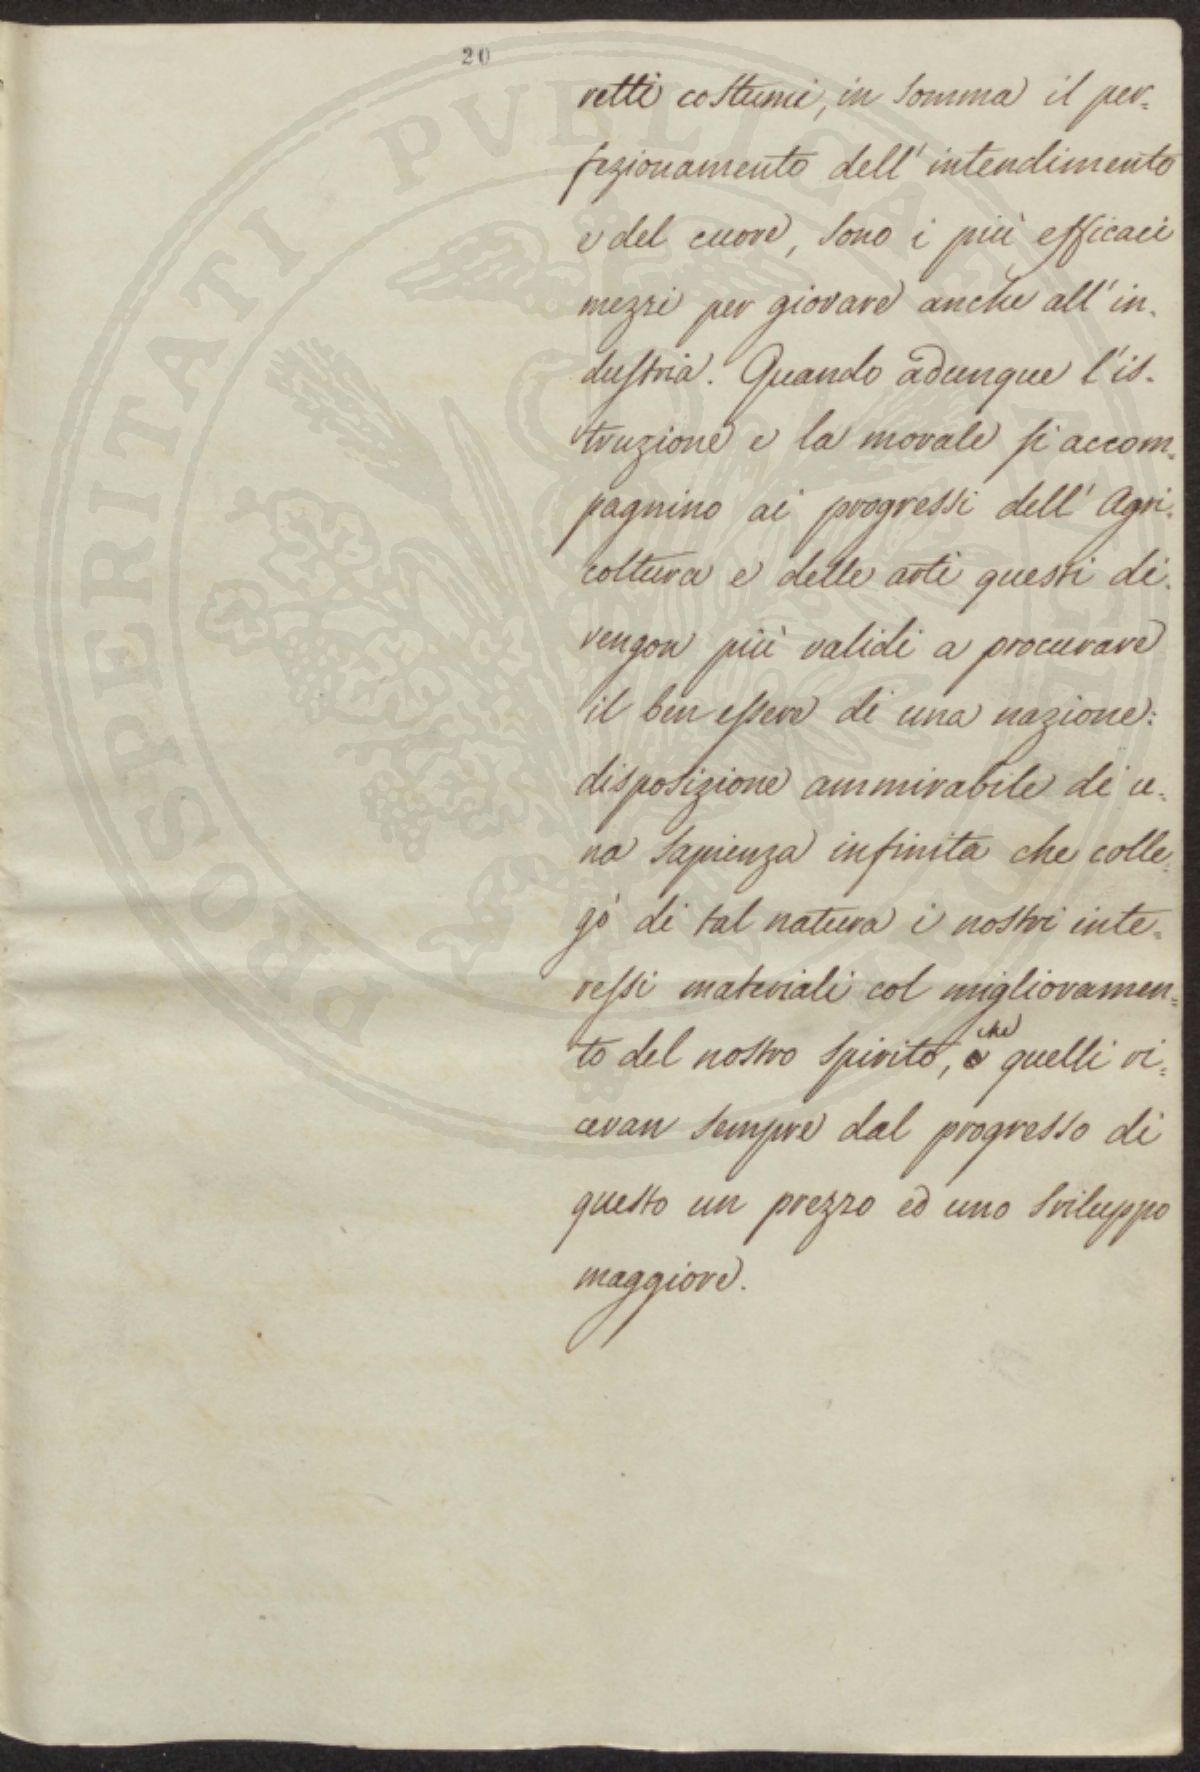 20
retti costumi, in somma il per=
fezionamento dell'intendimento
e del cuore, sono i più efficaci
mezzi per giovare anche all'in=
dustria. Quando adunque l'is=
truzione e la morale si accom=
pagnino ai progressi dell'Agri=
coltura e delle arti questi di=
vengon più validi a procurare
il ben essere di una nazione:
disposizione ammirabile di u=
na sapienza infinita che colle=
gò di tal natura i nostri inte=
ressi materiali col miglioramen=
to del nostro spirito, che quelli ri=
cevan sempre dal progresso di
questo un prezzo ed uno sviluppo
maggiore.
PROSPERITATI PVBLICAE AVGENDAE